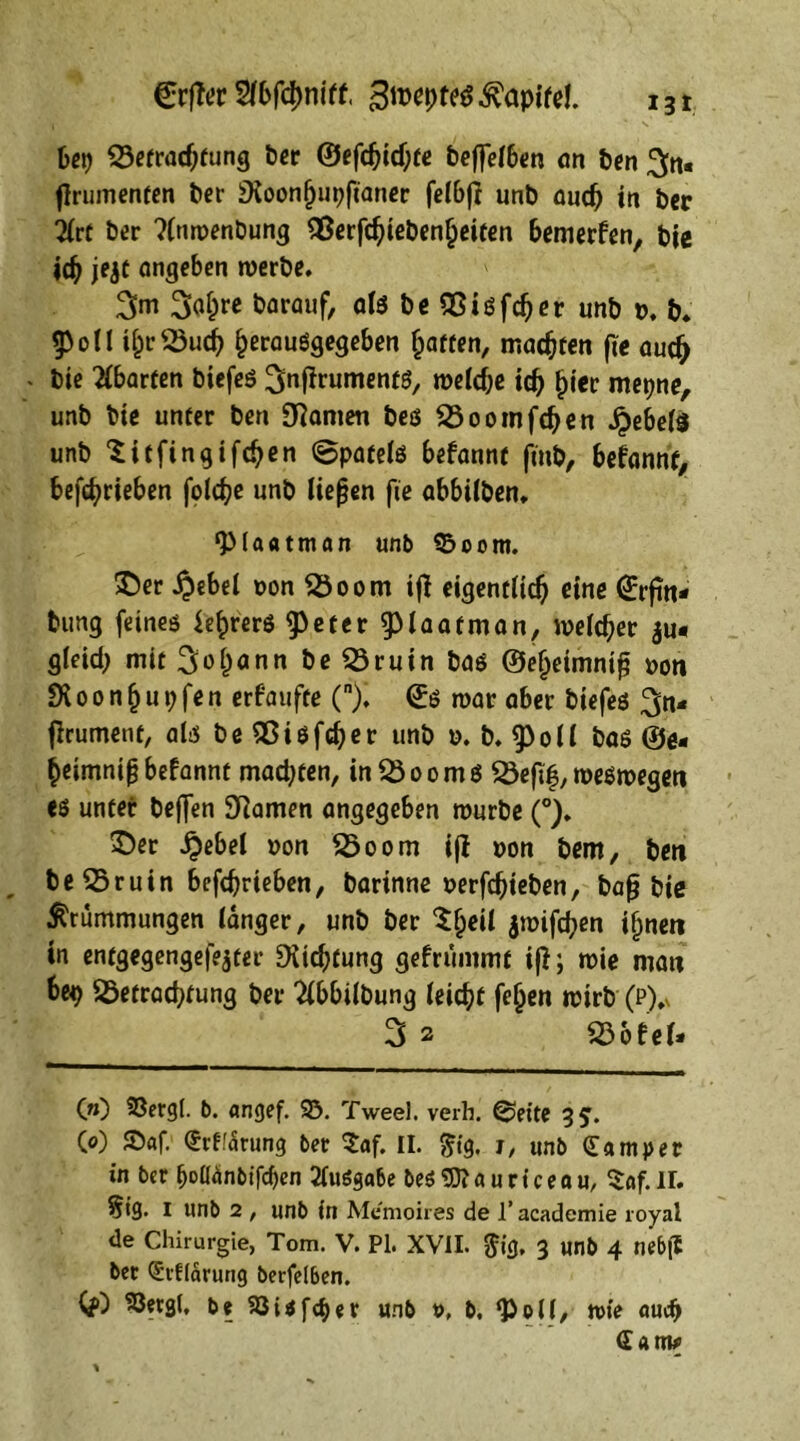 Erster Abschnitt. Zweytes Kapitel. 131
bey Betrachtung der Geschichte desselben an den In-
strumenten der Roonhuysianer selbst und auch in der
Art der Anwendung Verschiedenheiten bemerken, die
ich jezt angeben werde.
Im Jahre darauf, als de Visscher und v. d.
Poll ihr Buch herausgegeben hatten, machten sie auch
die Abarten dieses Instruments, welche ich hier meyne,
und die unter den Namen des Boomschen Hebels
und Titsingischen Spatels bekannt sind, bekannt,
beschrieben solche und ließen sie abbilden.
Plaatman und Boom.
Der Hebel von Boom ist eigentlich eine Erfin-
dung seines Lehrers Peter Plaatman, welcher zu-
gleich mit Johann de Bruin das Geheimniß von
Roonhuysen erkaufte (n). Es war aber dieses In-
strument, als de Visscher und v. d. Poll das Ge-
heimniß bekannt machten, in Booms Besitz, weswegen
es unter dessen Namen angegeben wurde (o).
Der Hebel von Boom ist von dem, den
de Bruin beschrieben, darinne verschieden, daß die
Krümmungen länger, und der Theil zwischen ihnen
in entgegengesezter Richtung gekrümmt ist; wie man
bey Betrachtung der Abbildung leicht sehen wird (p).
I 2 Bökel-
(n) Vergl. d. angef. B. Tweel. verh. Seite 35.
(o) Das. Erklärung der Taf. II. Fig. 1, und Camper
in der holländischen Ausgabe des Mauriceau, Taf. II.
Fig. 1 und 2, und in Mémoires de l'academie royal
de Chirurgie, Tom. V. Pl. XVII. Fig. 3 und 4 nebst
der Erklärung derselben.
(p) Vergl. de Visscher und v. d. Poll, wie auch
Cam-